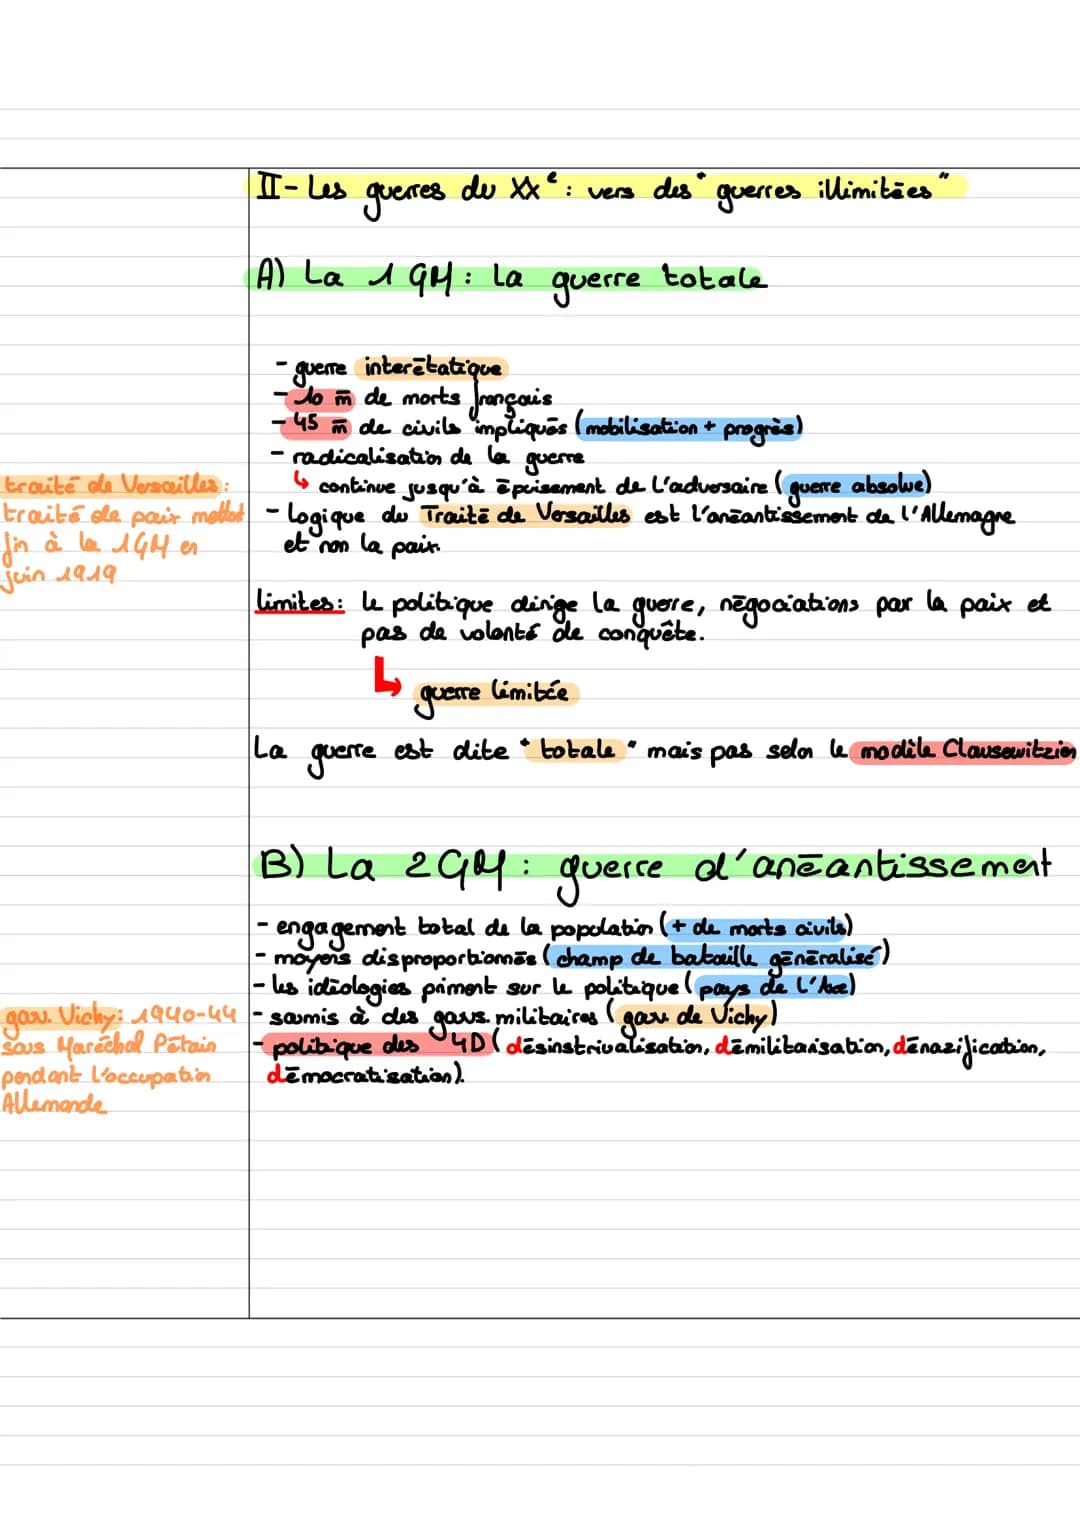 II- Les guerres du XXe : vers des "guerres illimitées"
A) La 1GM : La guerre totale
- guerre interétatique
- 10 m de morts français
- 45 m de civils impliqués (mobilisation + progrès)
- radicalisation de la guerre
↳ continue jusqu'à épuisement de l'adversaire (guerre absolue)
traité de Versailles :
traité de paix mettant
fin à la 1GM en
juin 1919
- Logique du Traité de Versailles est l'anéantissement de l'Allemagne
et non la paix.
Limites : le politique dirige la guerre, négociations par la paix et
pas de volonté de conquête.
↳ guerre limitée
La guerre est dite "totale" mais pas selon le modèle Clausewitzien
B) La 2GM : guerre d'anéantissement
- engagement total de la population (+ de morts civils)
- moyens disproportionnés (champ de bataille généralisé)
- les idéologies priment sur le politique (pays de l'Axe)
- soumis à des gouvs. militaires (gouv de Vichy)
- politique des 4D (désinstrualisation, démilitarisation, dénazification,
démocratisation).
gouv. Vichy : 1940-44
sous Maréchal Pétain
pendant l'occupation
Allemande